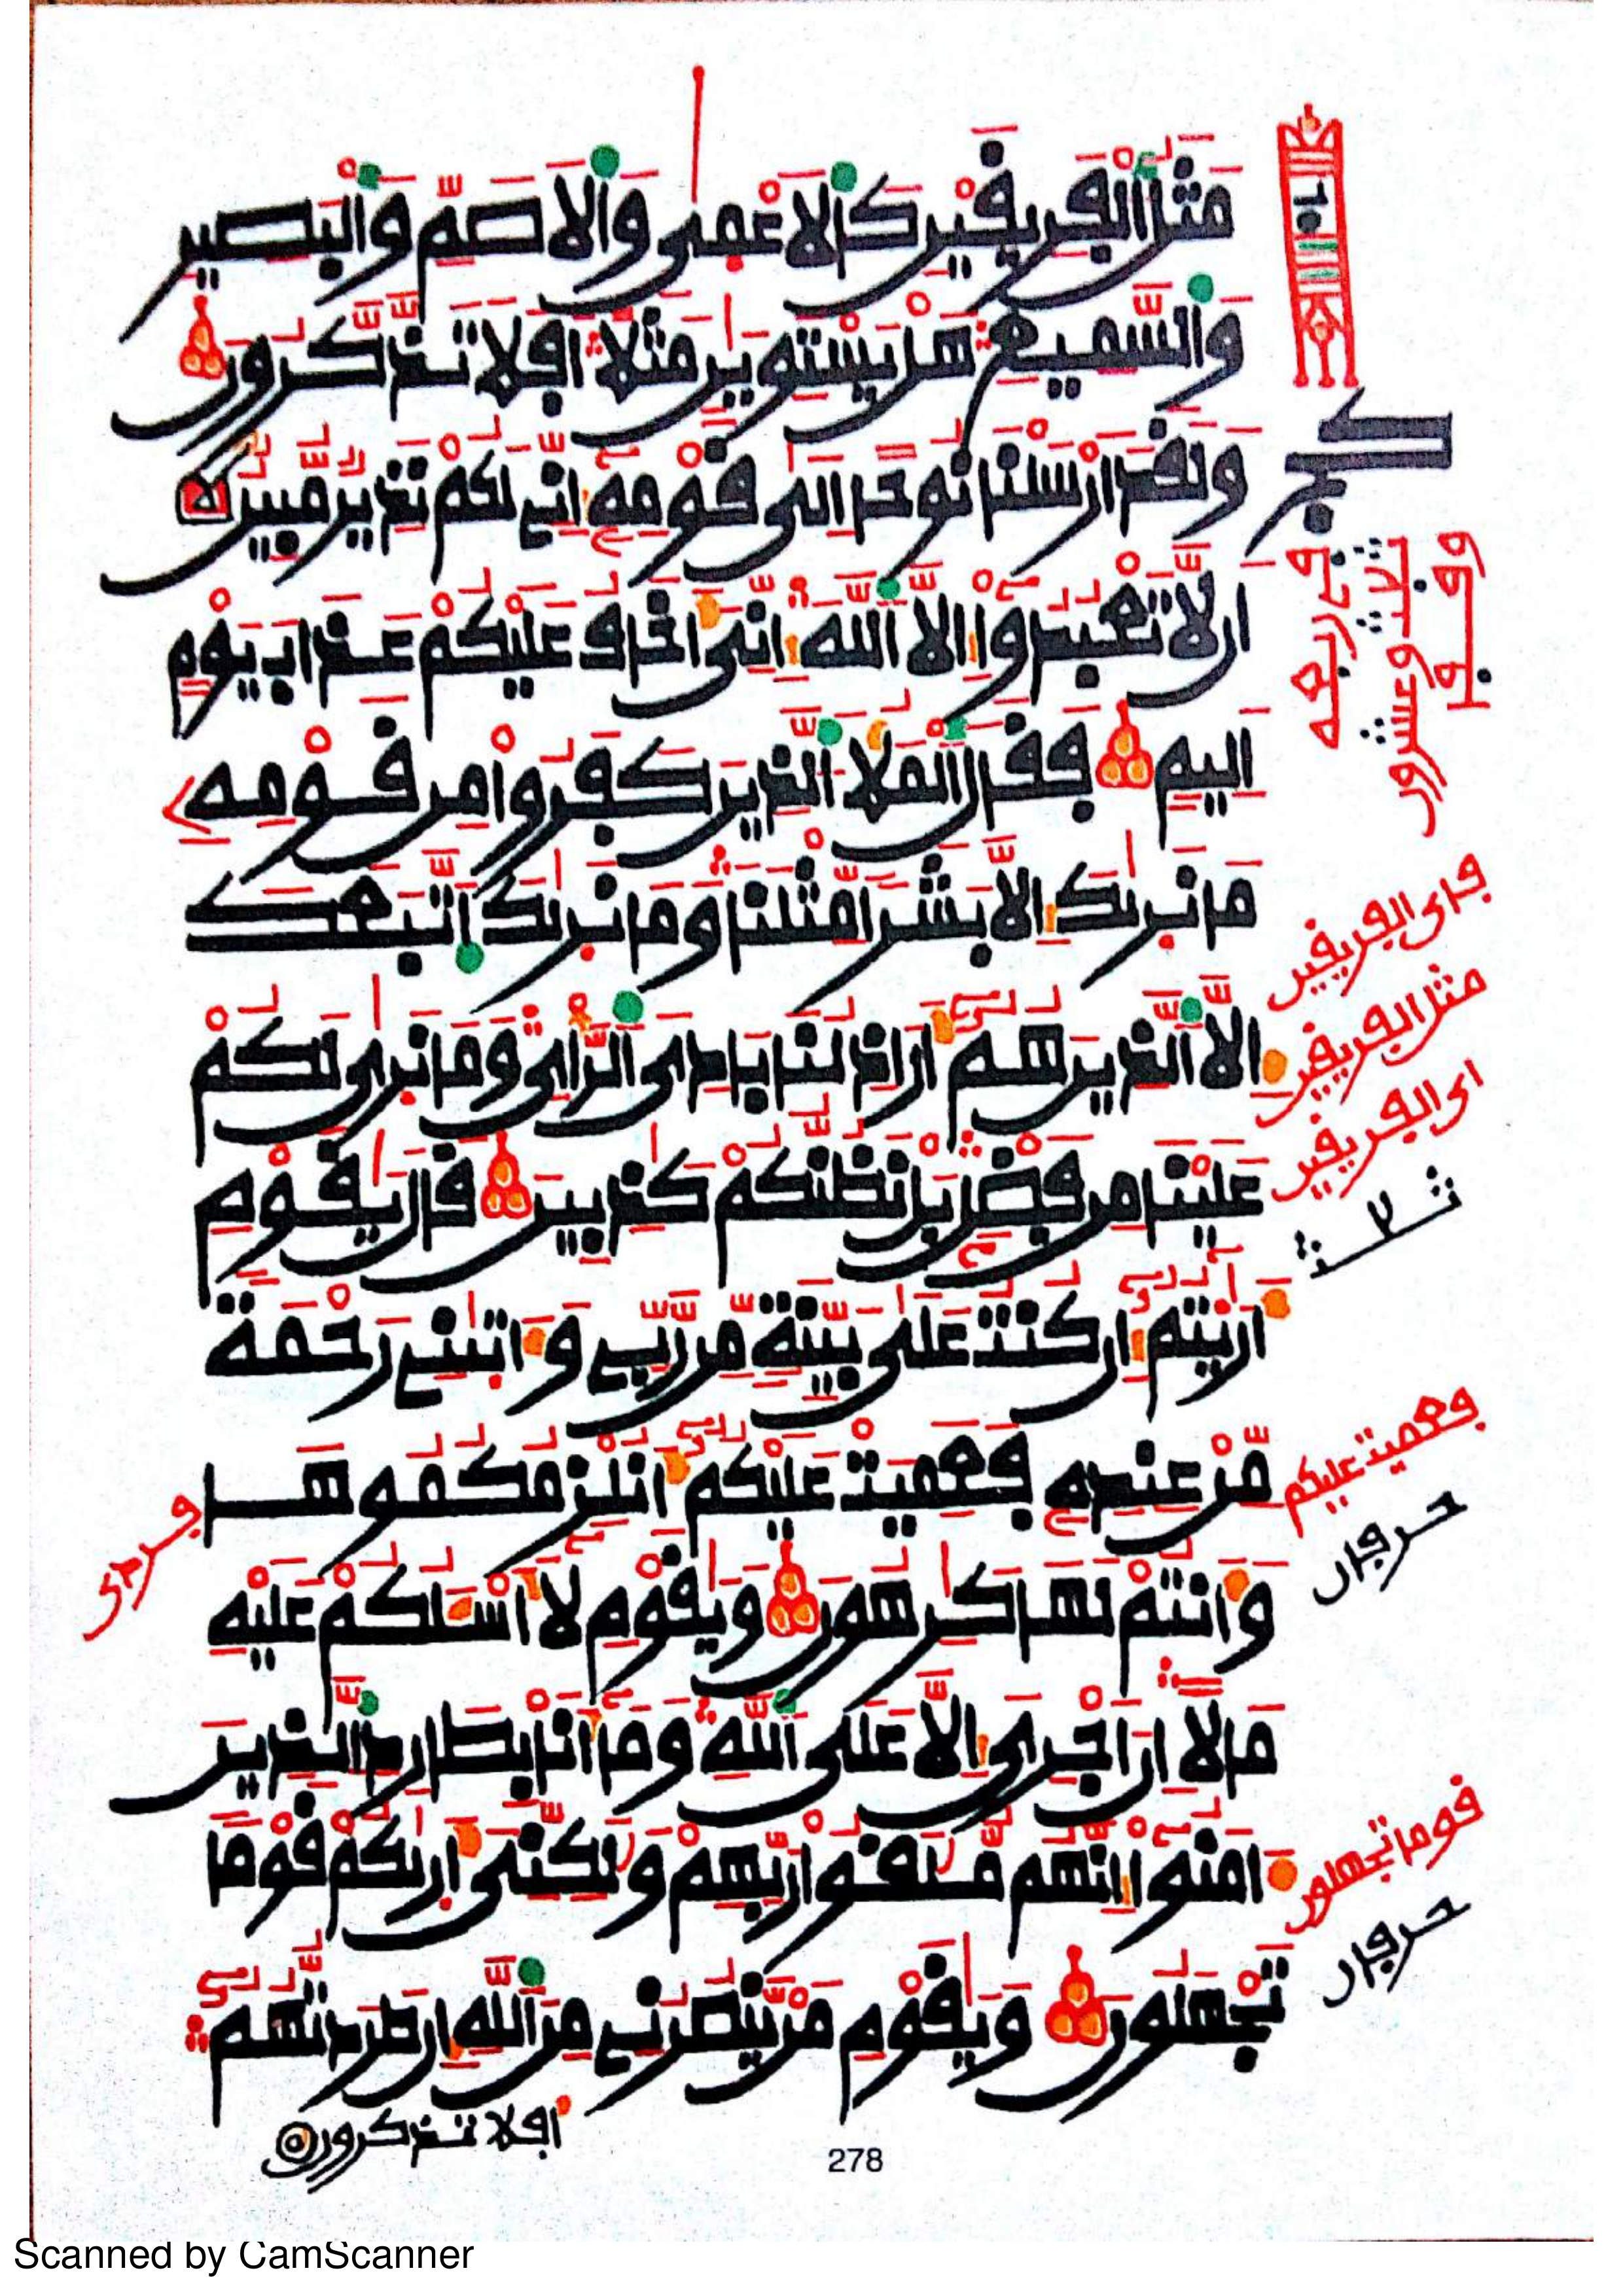 مَثَلُ الْفَرِيقَيْنِ كَالْاَعْمٰى وَالْاَصَمِّ وَالْبَصِيرِ
وَالسَّمِيعِ هَلْ يَسْتَوِيٰنِ مَثَلًا اَفَلَا تَذَّكَّرُونَ
وَلَقَدْ اَرْسَلْنَا نُوحًا اِلٰى قَوْمِهِ اِنِّي لَكُمْ نَذِيرٌ مُّبِينٌ
اَن لَّا تَعْبُدُوا اِلَّا اللَّهَ اِنِّيَ اَخَافُ عَلَيْكُمْ عَذَابَ يَوْمٍ
اَلِيمٍ فَقَالَ الْمَلَا الَّذِينَ كَفَرُوا مِن قَوْمِهِ
مَا نَرٰىكَ اِلَّا بَشَرًا مِّثْلَنَا وَمَا نَرٰىكَ اتَّبَعَكَ
اِلَّا الَّذِينَ هُمُ اَرَاذِلُنَا بَادِيَ الرَّاْيِ وَمَا نَرٰى لَكُمْ
عَلَيْنَا مِن فَضْلٍ بَلْ نَظُنُّكُمْ كَٰذِبِينَ قَالَ يَٰقَوْمِ
اَرَٰيْتُمُ اِن كُنتُ عَلٰى بَيِّنَةٍ مِّن رَّبِّي وَاٰتَىٰنِي رَحْمَةً
مِّنْ عِندِهِ فَعَمِيَتْ عَلَيْكُمُ اَنُلْزِمُكُمُوهَا
وَاَنتُمْ لَهَا كَٰرِهُونَ وَيَٰقَوْمِ لَا اَسْـَٔلُكُمْ عَلَيْهِ
مَالًا اِنْ اَجْرِيَ اِلَّا عَلَى اللَّهِ وَمَا اَنَا بِطَارِدِ الَّذِينَ
اٰمَنُوا اِنَّهُم مُّلَٰقُوا رَبِّهِمْ وَلَٰكِنِّيَ اَرٰىكُمْ قَوْمًا
تَجْهَلُونَ وَيَٰقَوْمِ مَن يَّنصُرُنِي مِنَ اللَّهِ اِن طَرَدتُّهُمُ
افلا تذكرون
278
فاى الفريقين
مثل الفريقين
اى الفريقين
فعميت عليكم
حرفان
قوما تجهلون
حرفان
Scanned by CamScanner